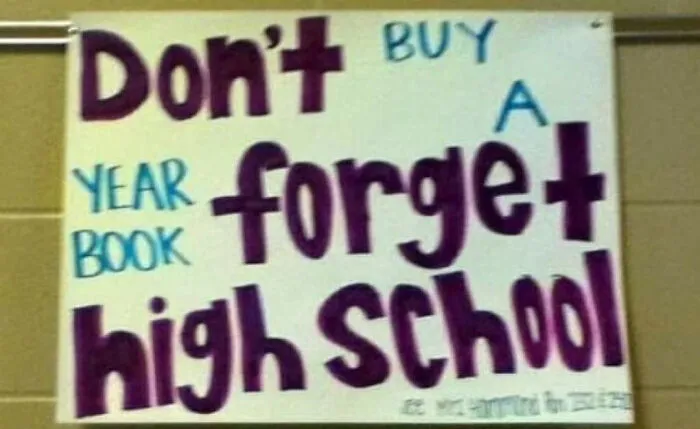 Don't BUY
A
YEAR forget
BOOK
high school
see Mrs Hammond Rm